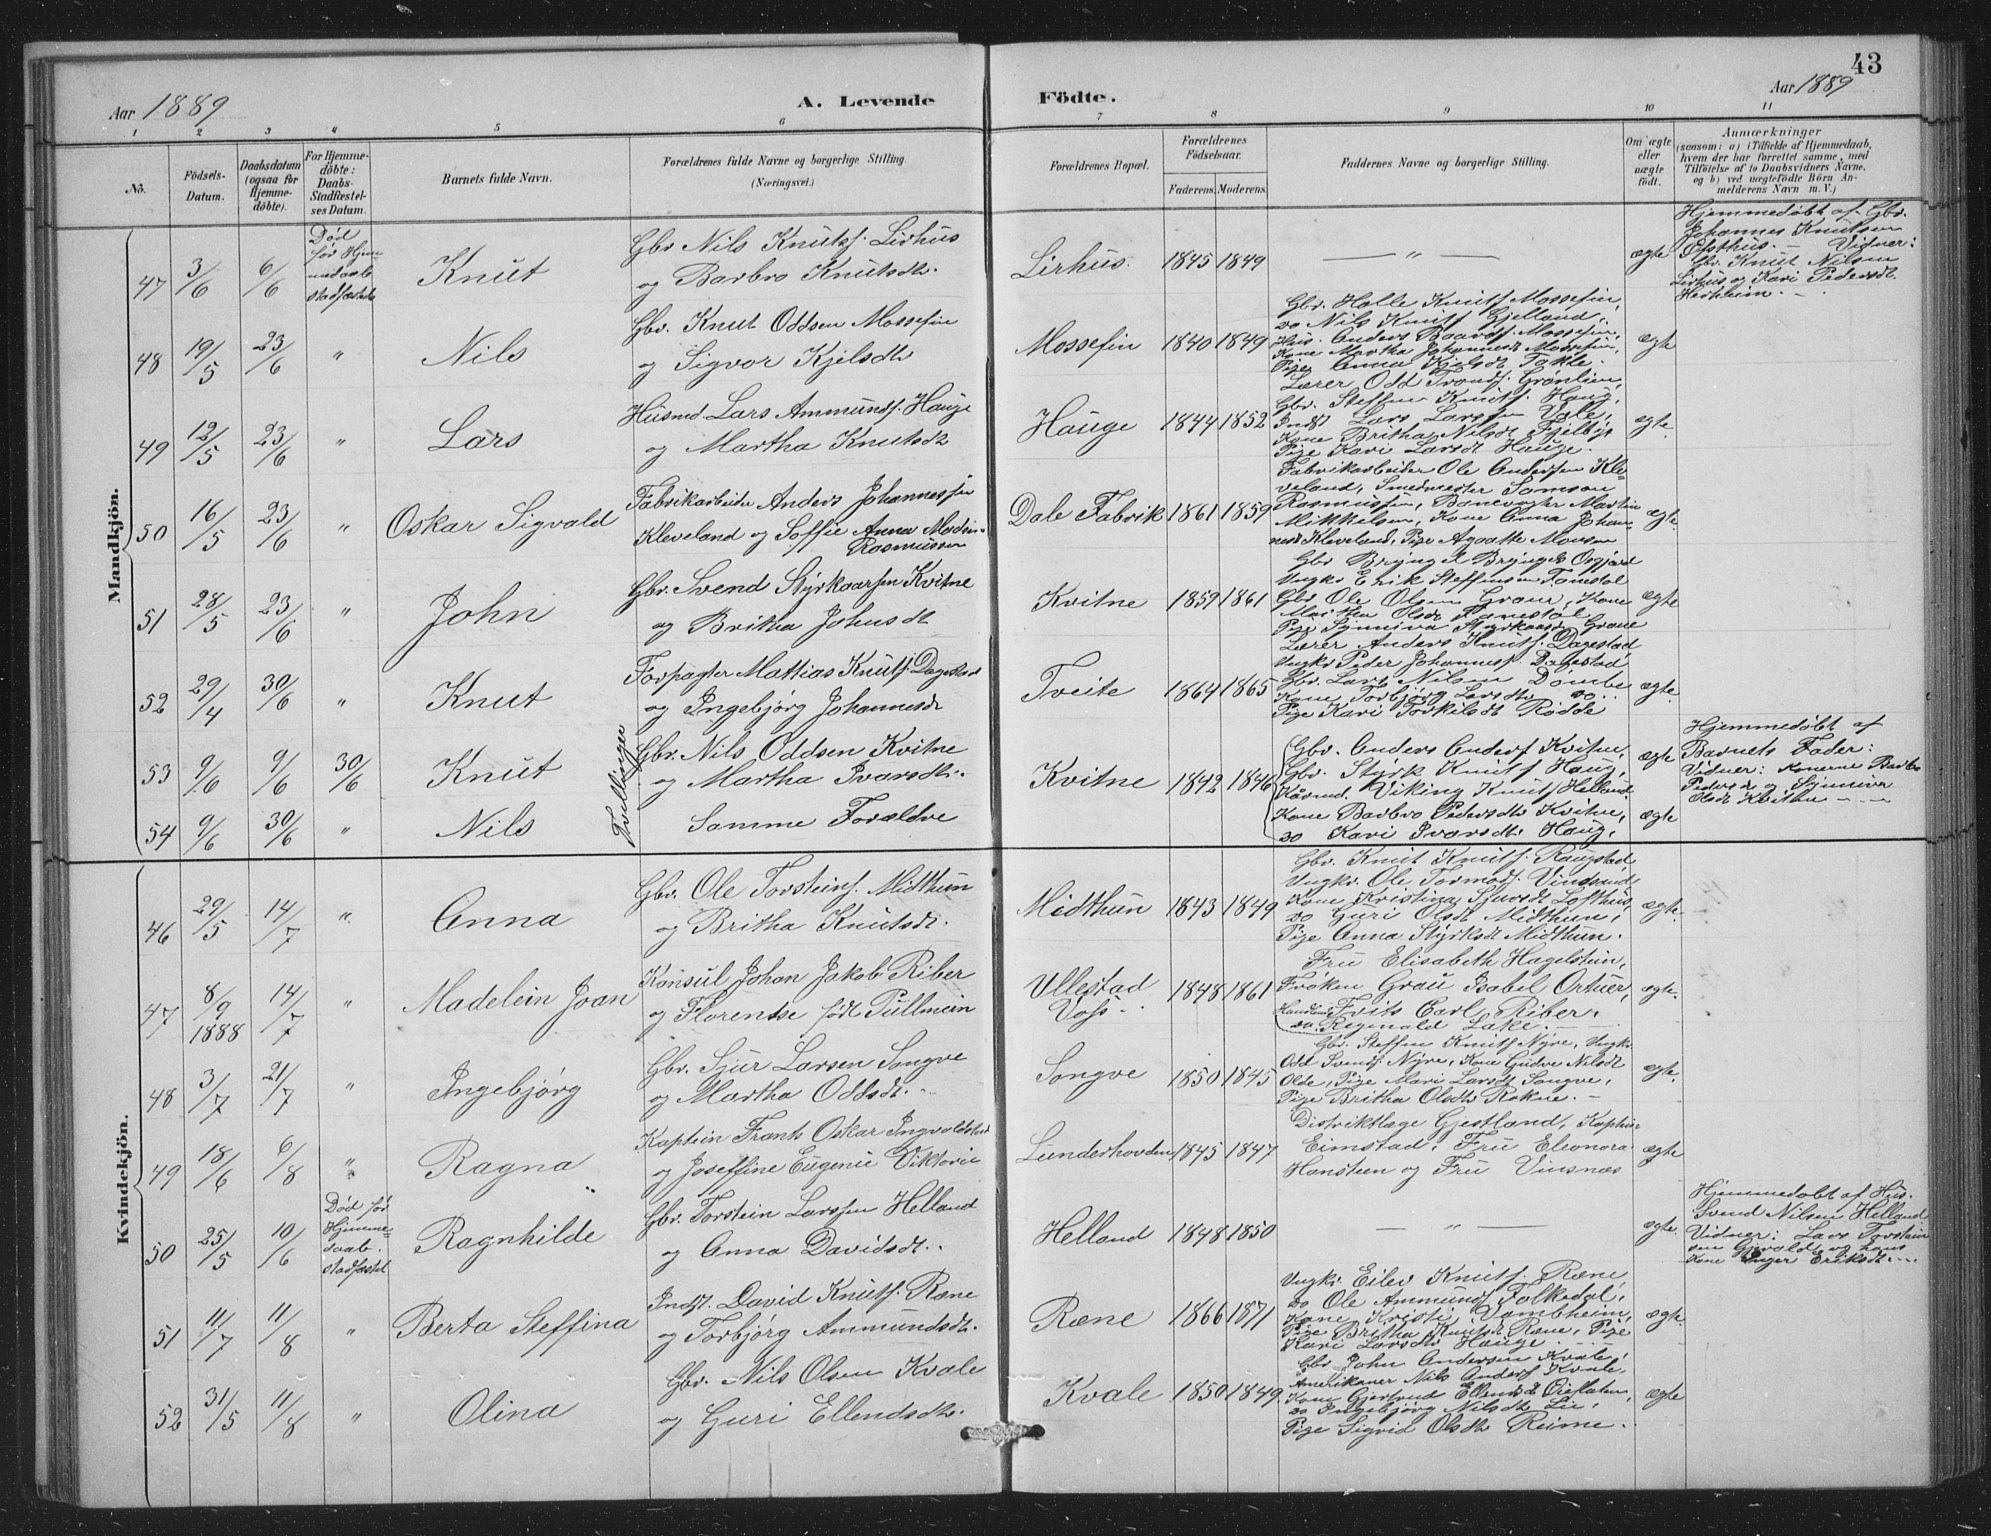 43
Aar 1889
A. Levende
Födte.
Aar 1889
1 2 3 4 5 6 7 8 9 10 11
No.
Födsels-
Datum.
Daabsdatum
(ogsaa for
Hjemme-
döbte).
For Hjemme-
döbte:
Daabs-
Stadfæstel-
ses Datum.
Barnets fulde Navn.
Forældrenes fulde Navne og borgerlige Stilling.
(Næringsvei.)
Forældrenes Bopæl.
Forældrenes
Födselsaar.
Faderens. Moderens.
Faddernes Navne og borgerlige Stilling.
Om ægte
eller
uægte
födt.
Anmærkninger
(saasom: a) i Tilfælde af Hjemmedaab,
hvem der har forrettet samme, med
Tilföielse af to Daabsvidners Navne.
og b) ved uægtefödte Börn An-
melderens Navn m. V.)
Mandkjön.
47 3/6 6/6
Död
för Hjem
medaab
stadfæstet
Knut
Gbr Nils Knutsf. Lirhus
og Barbro Knutsdt.
Lirhus. 1845 1849
— " —
ægte
Hjemmedöbt af Gbr.
Johannes Knutsen
Vidner:
Gbr. Knut Nilsen
Lirhus og Kari Pedersdt.
48 19/5 23/6 "
Nils
Gbr. Knut Oddsen Mossefin
og Sigvor Kjelsdt.
Mossefin 1840 1849
Gbr. Halle Knutsf Mossefin,
do Nils Knutsf Gjelland,
Hus. Anders Baardsf. Mossefin,
Kone Martha Johannesdt Mossefin,
Pige Anna Kjelsdt Takle.
ægte
49 12/5 23/6 "
Lars
Husmd. Lars Ammundsf. Hauge
og Martha Knutsdt.
Hauge 1844 1852
Lærer Odd Trondsf. Grönlien,
Gbr. Steffen Knutsf. Haug,
Indst Lars Larssen Vale,
Kone Britha Nilsdt
Pige Kari Larsdt Hauge.
ægte
50 16/5 23/6 "
Oskar Sigvald
Fabrikarbeider Anders Johannessen
Kleveland og Soffie Anna
Rasmussen
Dale Fabrik 1861 1859
Fabrikarbeider Ole Andersen Kle-
veland, Smedmester Samson
Rasmussen, Banevogter Martin
Mikkelsen, Kone Anna Johan-
nesdt Kleveland, Pige Agaatte Monsen
ægte
51 28/5 23/6 "
John
Gbr. Svend Styrkaarsen Kvitne
og Britha Johnsdt
Kvitne 1859 1861
Gbr Brynjel Brynjels
Ungkr Erik Steffensen Fonestöl
Gbr Ole Olsen Grane, Kone
Martha Olsdt Fonestöl,
Pige Synniva Styrkaarsdt Grane
ægte
52 29/4 30/6 "
Knut
Forpagter Mattias Knutsf. Dagestad
og Ingebjörg Johannesdt
Tveite 1864 1865
Lærer Anders Knutsf. Dagestad
Ungkr Peder Johannesf. Dagestad
Gbr. Lars Nilsen Dömbe
Kone Torbjörg Larsdt do.
Pige Kari Torkilsdt Rödde
ægte
53 9/6 9/6 30/6
Knut
Tvillinger
Gbr. Nils Oddsen Kvitne
og Martha Ivarsdt.
Kvitne 1842 1846
Gbr. Anders Andersf Kvitne,
Gbr. Styrk Knutsf Haug,
Viking Knutsf Helland
Kone Barbro Pedersdt Kvitne,
do Kari Ivarsdt. Haug.
ægte
Hjemmedöbt af
Barnets Fader:
Vidner: Konerne Barbro
Pedersdt og Synniva
Olsdt Kvitne
54 9/6 30/6 "
Nils
Samme Forældre
ægte
Kvindekjön.
46 29/5 14/7 "
Anna
Gbr. Ole Torsteinsf. Midthun
og Britha Knutsdt.
Midthun 1843 1849
Gbr. Knut Knutsf. Raugstad
Ungkr. Ole Tormodsf. Vinsand
Kone Kristina Sjursdt Lofthus,
do Guri Olsdt Midthun,
Pige Anna Styrksdt Midthun.
ægte.
47 8/9 1888 14/7 "
Madelein Joan
Konsul Johan Jakob Riber
og Florentse födt Pullmein
Ullestad
Voss. 1848 1861
Fru Elisabeth Hagelstein,
Fröken Grau Isabel Ortuer,
Frits Carl Riber.
do. Reginald Lake.
ægte.
48 3/7 21/7 "
Ingebjörg
Gbr. Sjur Larsen Songve
og Martha Oddsdt.
Songve 1850 1845
Gbr. Steffen Knutsf Nyre, Ungkr
Odd Svendsf Nyre, Kone Gudve Nilsdt
Olde, Pige Mari Larsdt Songve,
Pige Britha Olsdt Rokne.
ægte.
49 18/6 6/8 "
Ragna
Kaptein Frants Oskar Ingvoldstad
og Joseffine Eugenie Viktorie
Lunderhovden 1845 1847
Distriktlæge Gjestland, Kaptein
Eimstad, Fru Eleonora
Hansteen og Fru Vinsnæs
ægte
50 25/5 10/6
Död för
Hjemme-
daab.
stadfæstet
Ragnhilde
Gbr. Torstein Larssen Helland
og Anna Davidsdt.
Helland 1848 1850
— " —
ægte
Hjemmedöbt af Hus.
Svend Nilsen Helland
Vidner: Lars Torstein-
sen og hans
Kone Inger Eriksdt.
51 11/7 11/8 "
Berta Steffina
Indst. David Knutsf. Ræne
og Torbjörg Ammundsdt.
Ræne 1866 1871
Ungkr. Eilev Knutsf. Ræne
do Ole Ammundsf Folkedal,
Kone Kristi Vambheim,
Pige Britha Knutsdt Ræne, Pige
Kari Larsdt Hauge
ægte.
52 31/5 11/8 "
Olina
Gbr. Nils Olsen Kvale
og Guri Ellendsdt.
Kvale 1850 1849
Gbr John Andersen Kvale,
Amerikaner Nils Andersf Kvale,
Kone Gjertrud Ellensdt
do Ingebjörg Nilsdt Lie,
Pige Sigrid Olsdt Reime.
ægte